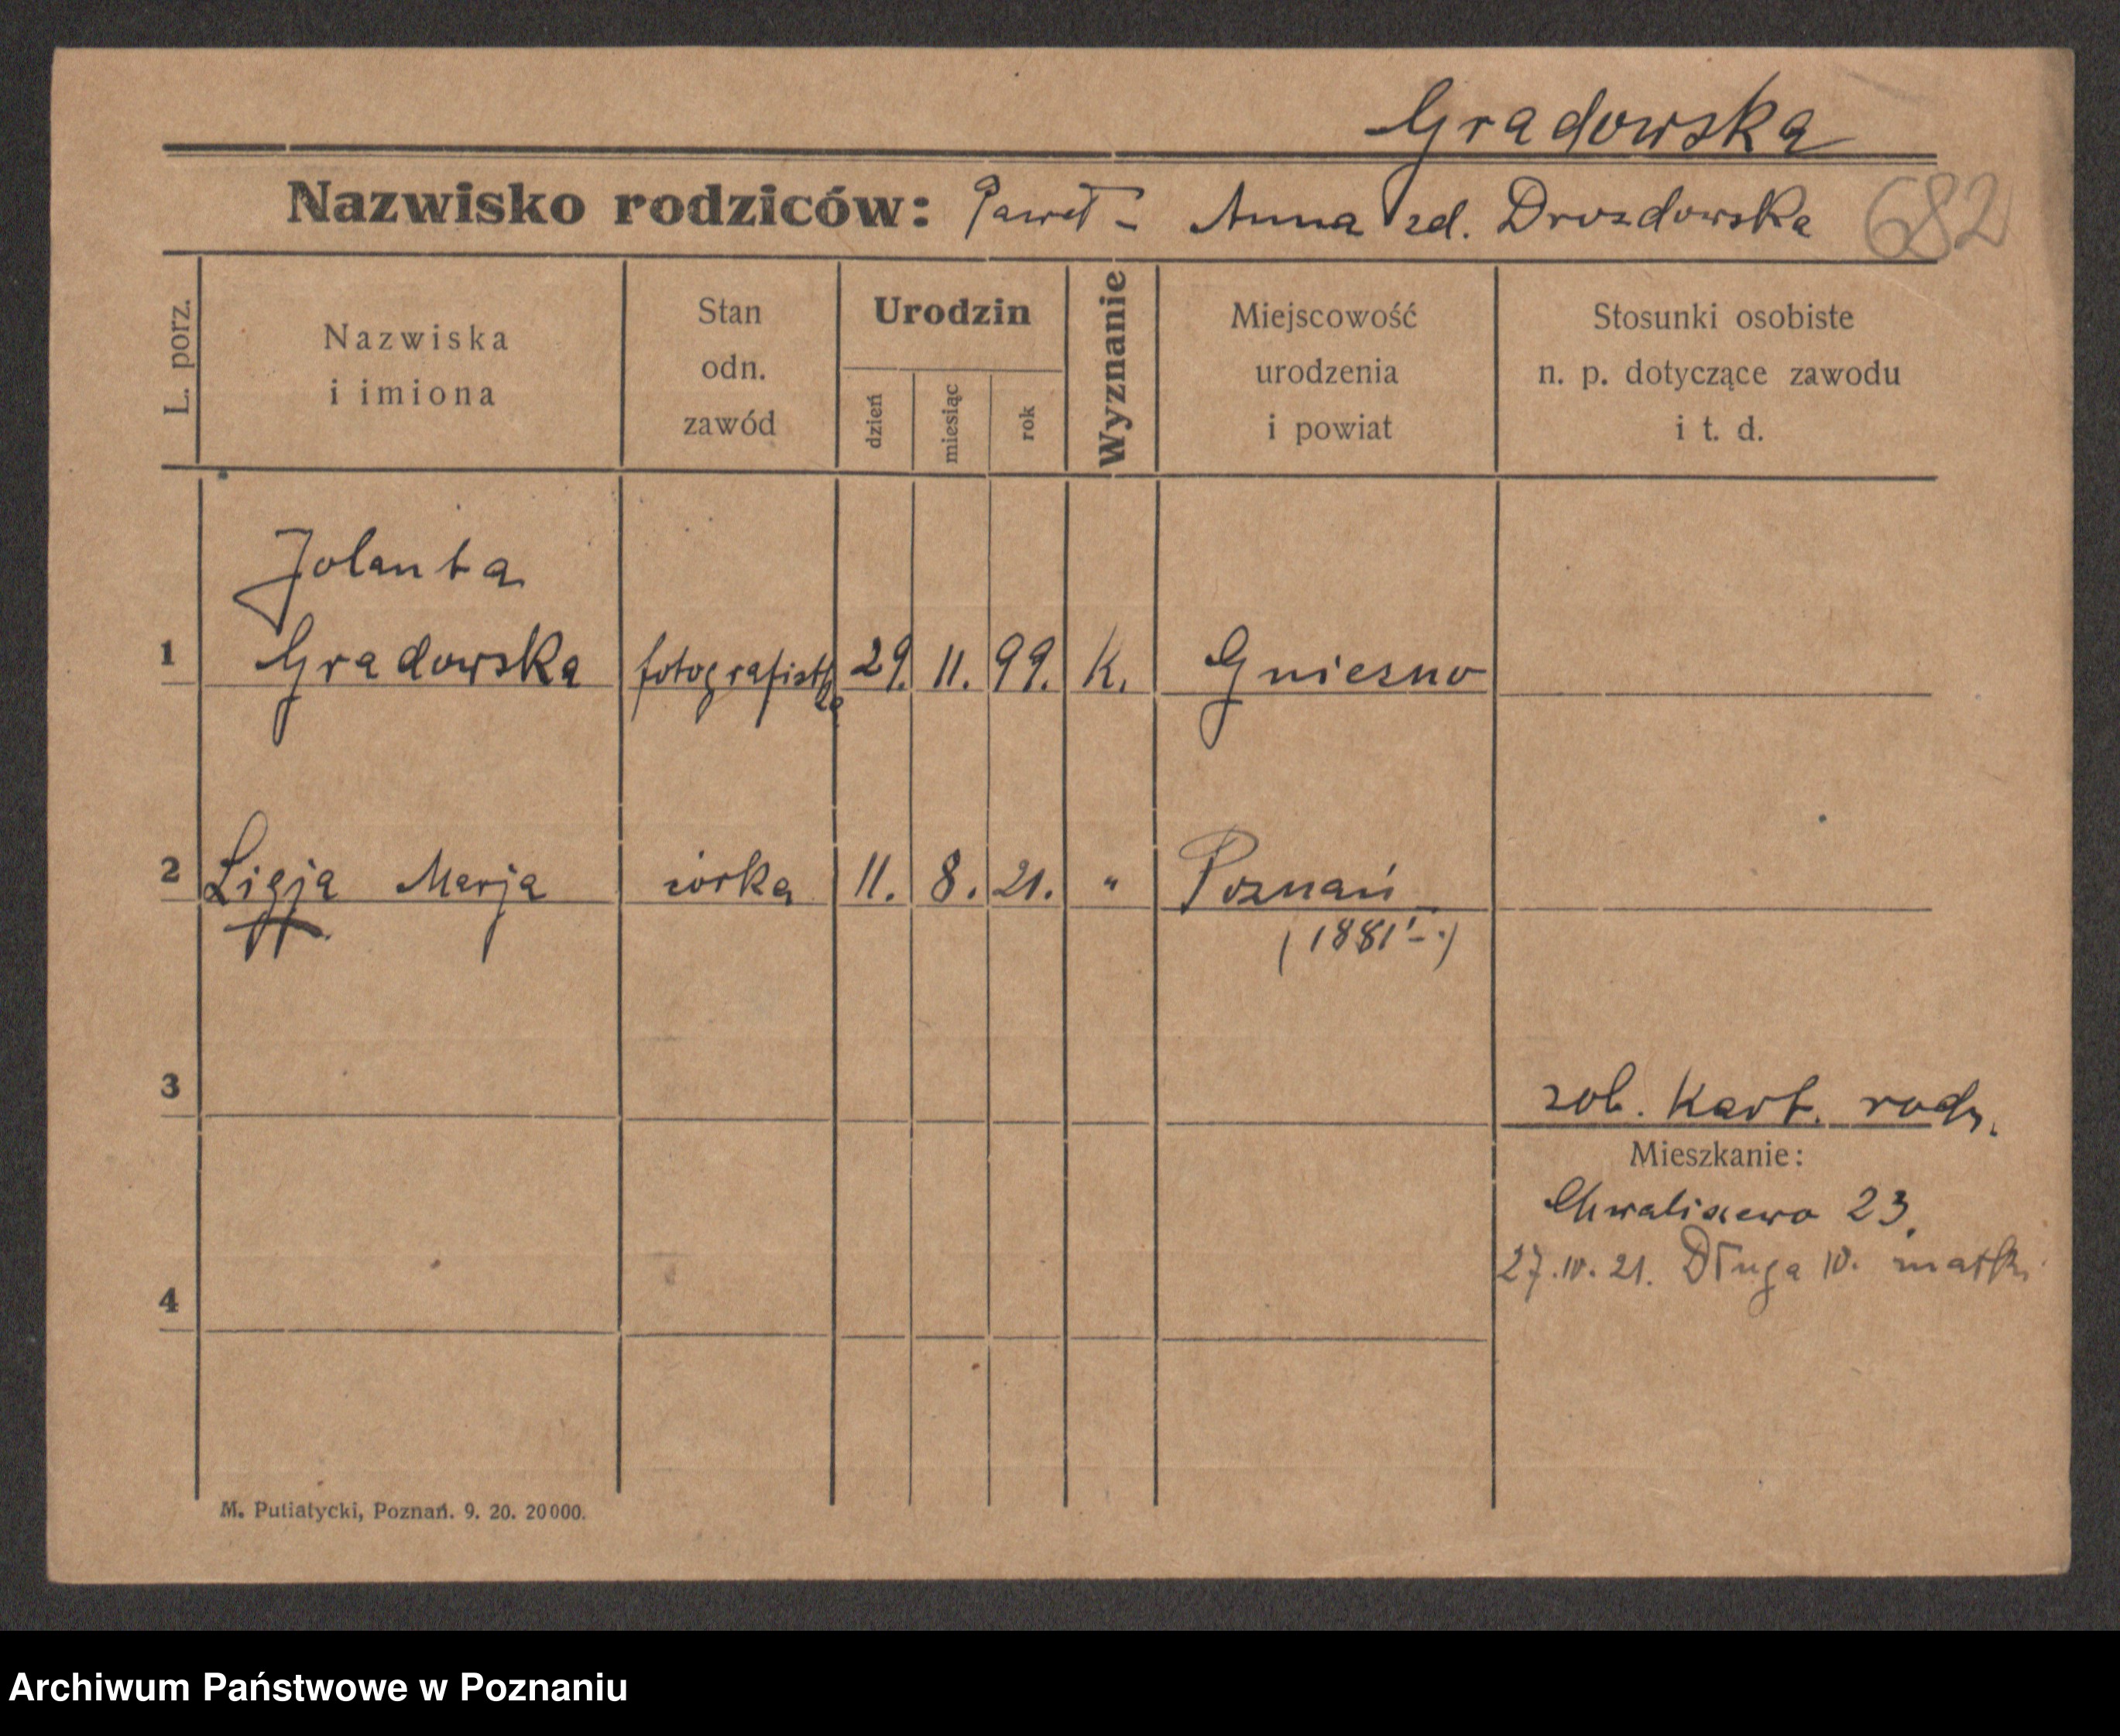 Gradowska
Nazwisko rodziców: Paweł - Anna zd. Drozdowska 682
L. porz.
Nazwiska
i imiona
Stan
odn.
zawód
Urodzin
dzień
miesiąc
rok
Wyznanie
Miejscowość
urodzenia
i powiat
Stosunki osobiste
n. p. dotyczące zawodu
i t. d.
Jolanta
1 Gradowska fotografistka 29. 11. 99. K. Gniezno
2 Ligja Marja córka 11. 8. 21. " Poznań
(1881 -.)
3 zob. Kart. rodz.
Mieszkanie:
Chwaliszewo 23.
27.10.21. Długa 10.
4
M. Putiatycki, Poznań. 9. 20. 20000.
Archiwum Państwowe w Poznaniu